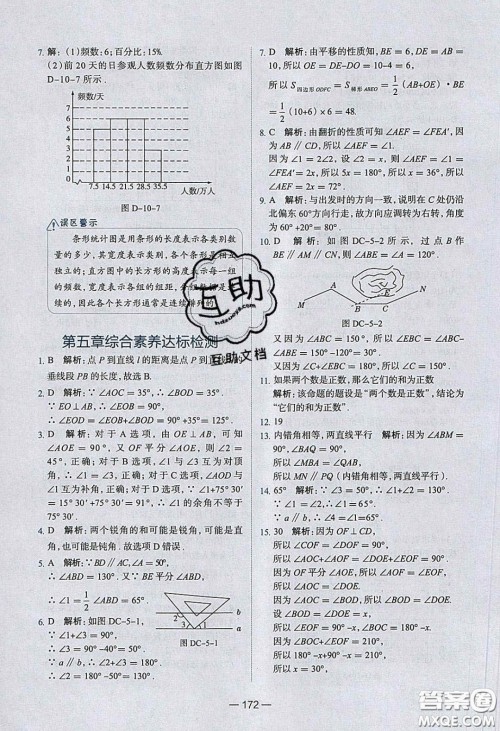 7. 解:(1)频数:6;百分比:15%.
(2)前20天的日参观人数频数分布直方图如图
D-10-7所示.
频数/天
7
6
5
4
3
2
1
7.5 14.5 21.5 28.5 35.5
人数/万人
图 D-10-7
误区警示
条形统计图是用条形的长度表示各类别数
量的多少,其宽度表示类别,各个条形是相互
独立的;直方图中的长方形的高度表示每一组
的频数,宽度表示各组的组距,各组的数据是连
续的,因此各个长方形通常是连续排列的.
第五章综合素养达标检测
1. B 解析:点 P 到直线 l 的距离是点 P 到
垂线段 PB 的长度,故选 B.
2. D 解析:∵ ∠AOC = 35°,∴ ∠BOD = 35°.
∵ EO⊥AB,∴ ∠EOB = 90°,
∴ ∠EOD=∠EOB+∠BOD=90°+35°=125°.
3. D 解析:对于 A 选项,由 OE⊥AB,可知
∠AOE = 90°,又 OF 平分 ∠AOE,则 ∠2 =
45°,正确;对于 B 选项,∠1与∠3互为对顶
角,因而相等,正确;对于 C 选项,∠AOD与∠1
互为邻补角,正确;对于 D 选项,∵ ∠1+75°30′
= 15°30′+75°30′= 91°,∴ ∠1的余角不等于
75°30′.
4. D 解析:两个锐角的和可能是锐角,可能是直
角,也可能是钝角.故选项 D 错误.
5. A 解析:∵ BD∥AC,∠A = 50°,
∴ ∠ABD = 130°.又∵ BE 平分∠ABD,
∴ ∠1 = 1/2∠ABD = 65°.
6. D 解析:如图 DC-5-1
∵ ∠1+∠3 = 90°,
∴ ∠3 = 90°-∠1 =
90°-30°= 60°.
∴ ∠2+∠3 = 180°,
∴ ∠2 = 180°-60°= 120°.
图 DC-5-1
7. D 解析:由平移的性质知,BE = 6,DE = AB =
10,所以 OE = DE-DO = 10-4 = 6,
所以 S四边形ODFC = S梯形ABEO = 1/2(AB+OE)·BE
= 1/2(10+6)×6 = 48.
8. C 解析:由翻折的性质可知 ∠AEF = ∠FEA′,因
为 AB∥CD,所以∠AEF = ∠1.
因为∠1 = 2∠2,设∠2 = x,则∠AEF = ∠FEA′,
∠1 = 2x,所以 5x = 180°,所以 x = 36°,
所以∠AEF = 2x = 72°.
9. A 解析:与出发时的方向一致,说明在 C 处仍沿
北偏东 60°方向行走,故方向应调转为右转,角度
为 60°+20°= 80°.
10. D 解析:如图 DC-5-2 所示,过点 B 作
BE∥AM∥CN,
图 DC-5-2
∵ ∠ABC = 150°,所以 ∠ABE+∠EBC
= 150°.又∠ABE = 120°,所以∠EBC = ∠ABC
-∠ABE = 150°-120°= 30°.
因为 BE∥CN,
所以∠C = 180°-30°= 150°.
11. 如果两个数是正数,那么它们的和为正数
解析:该命题的题设是“两个数是正数”,结论为
“它们的和为正数”
12. 19
13. 内错角相等,两直线平行 解析:因为∠ABM =
90°,∠BAQ = 90°,
所以∠MBA = ∠BAQ,
所以 MN∥PQ(内错角相等,两直线平行).
14. 65° 解析:∵ ∠3 = 50°,∴ ∠1+∠2 = 130°.
又∵ ∠1 = ∠2,∴ ∠1 = ∠2 = 65°.
∵ a∥b,∴ ∠1 = ∠4 = 65°.
15. 30 解析:因为 OF⊥CD,
所以∠COF = ∠DOF = 90°,
所以∠AOC+∠AOF = ∠DOE+∠EOF = 90°.
因为 OF 平分∠AOE,所以∠AOF = ∠EOF,
所以∠AOC = ∠DOE.
因为∠BOD = ∠AOC,
所以∠AOC = ∠DOE = ∠BOD.
因为∠BOC+∠EOF = 210°,
∠COF = ∠DOF = 90°,
所以∠BOF = 210°-90°-90°= 30°.
— 172 —
互助
互助文档
答案圈
MXQE.COM